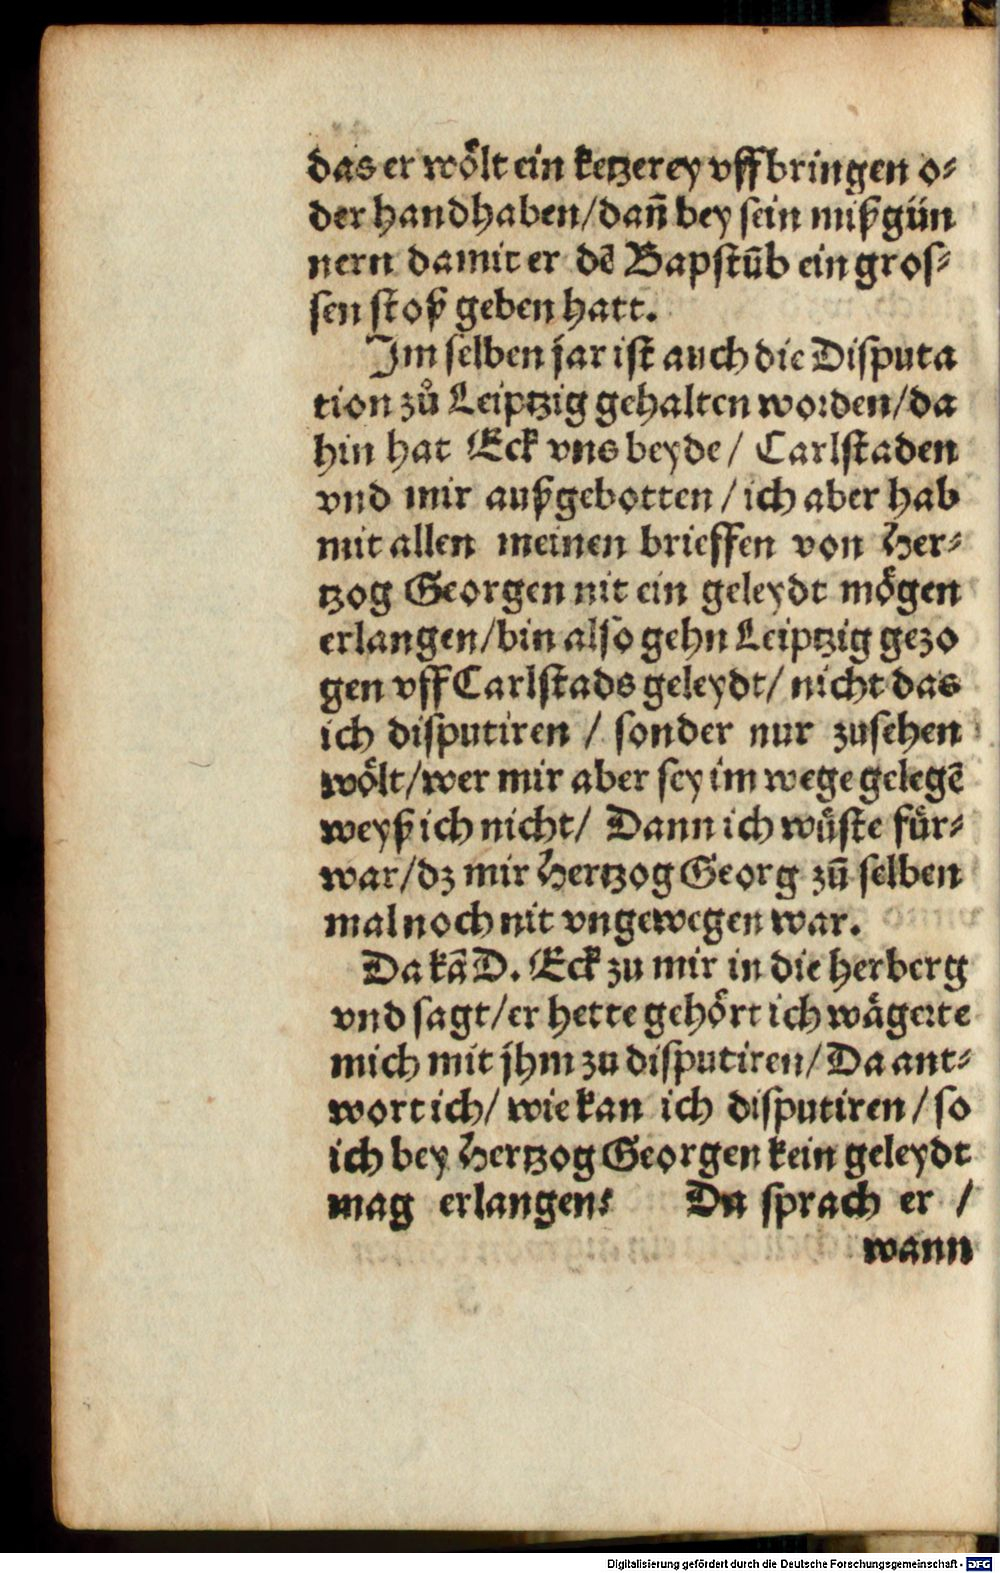 das er woͤlt ein ketzerey vffbringen o⸗
der handhaben/dañ bey sein mißgün
nern damit er dē Bapstūb ein gros⸗
sen stoß geben hatt.
Im selben jar ist auch die Disputa
tion zů Leiptzig gehalten worden/da
hin hat Eck vns beyde/ Carlstaden
vnd mir außgebotten/ich aber hab
mit allen meinen brieffen von Her⸗
tzog Georgen nit ein geleydt moͤgen
erlangen/bin also gehn Leiptzig gezo
gen vff Carlstads geleydt/ nicht das
ich disputiren / sonder nur zusehen
woͤlt/wer mir aber sey im wege gelegē
weyß ich nicht/ Dann ich wuͤste fuͤr⸗
war/dz mir Hertzog Georg zū selben
mal noch nit vngewegen war.
Da kā D. Eck zu mir in die herberg
vnd sagt/er hette gehoͤrt ich waͤgerte
mich mit jhm zu disputiren/Da ant⸗
wort ich/ wie kan ich disputiren/so
ich bey Hertzog Georgen kein geleydt
mag erlangen? Da sprach er /
wann
Digitalisierung gefördert durch die Deutsche Forschungsgemeinschaft - DFG